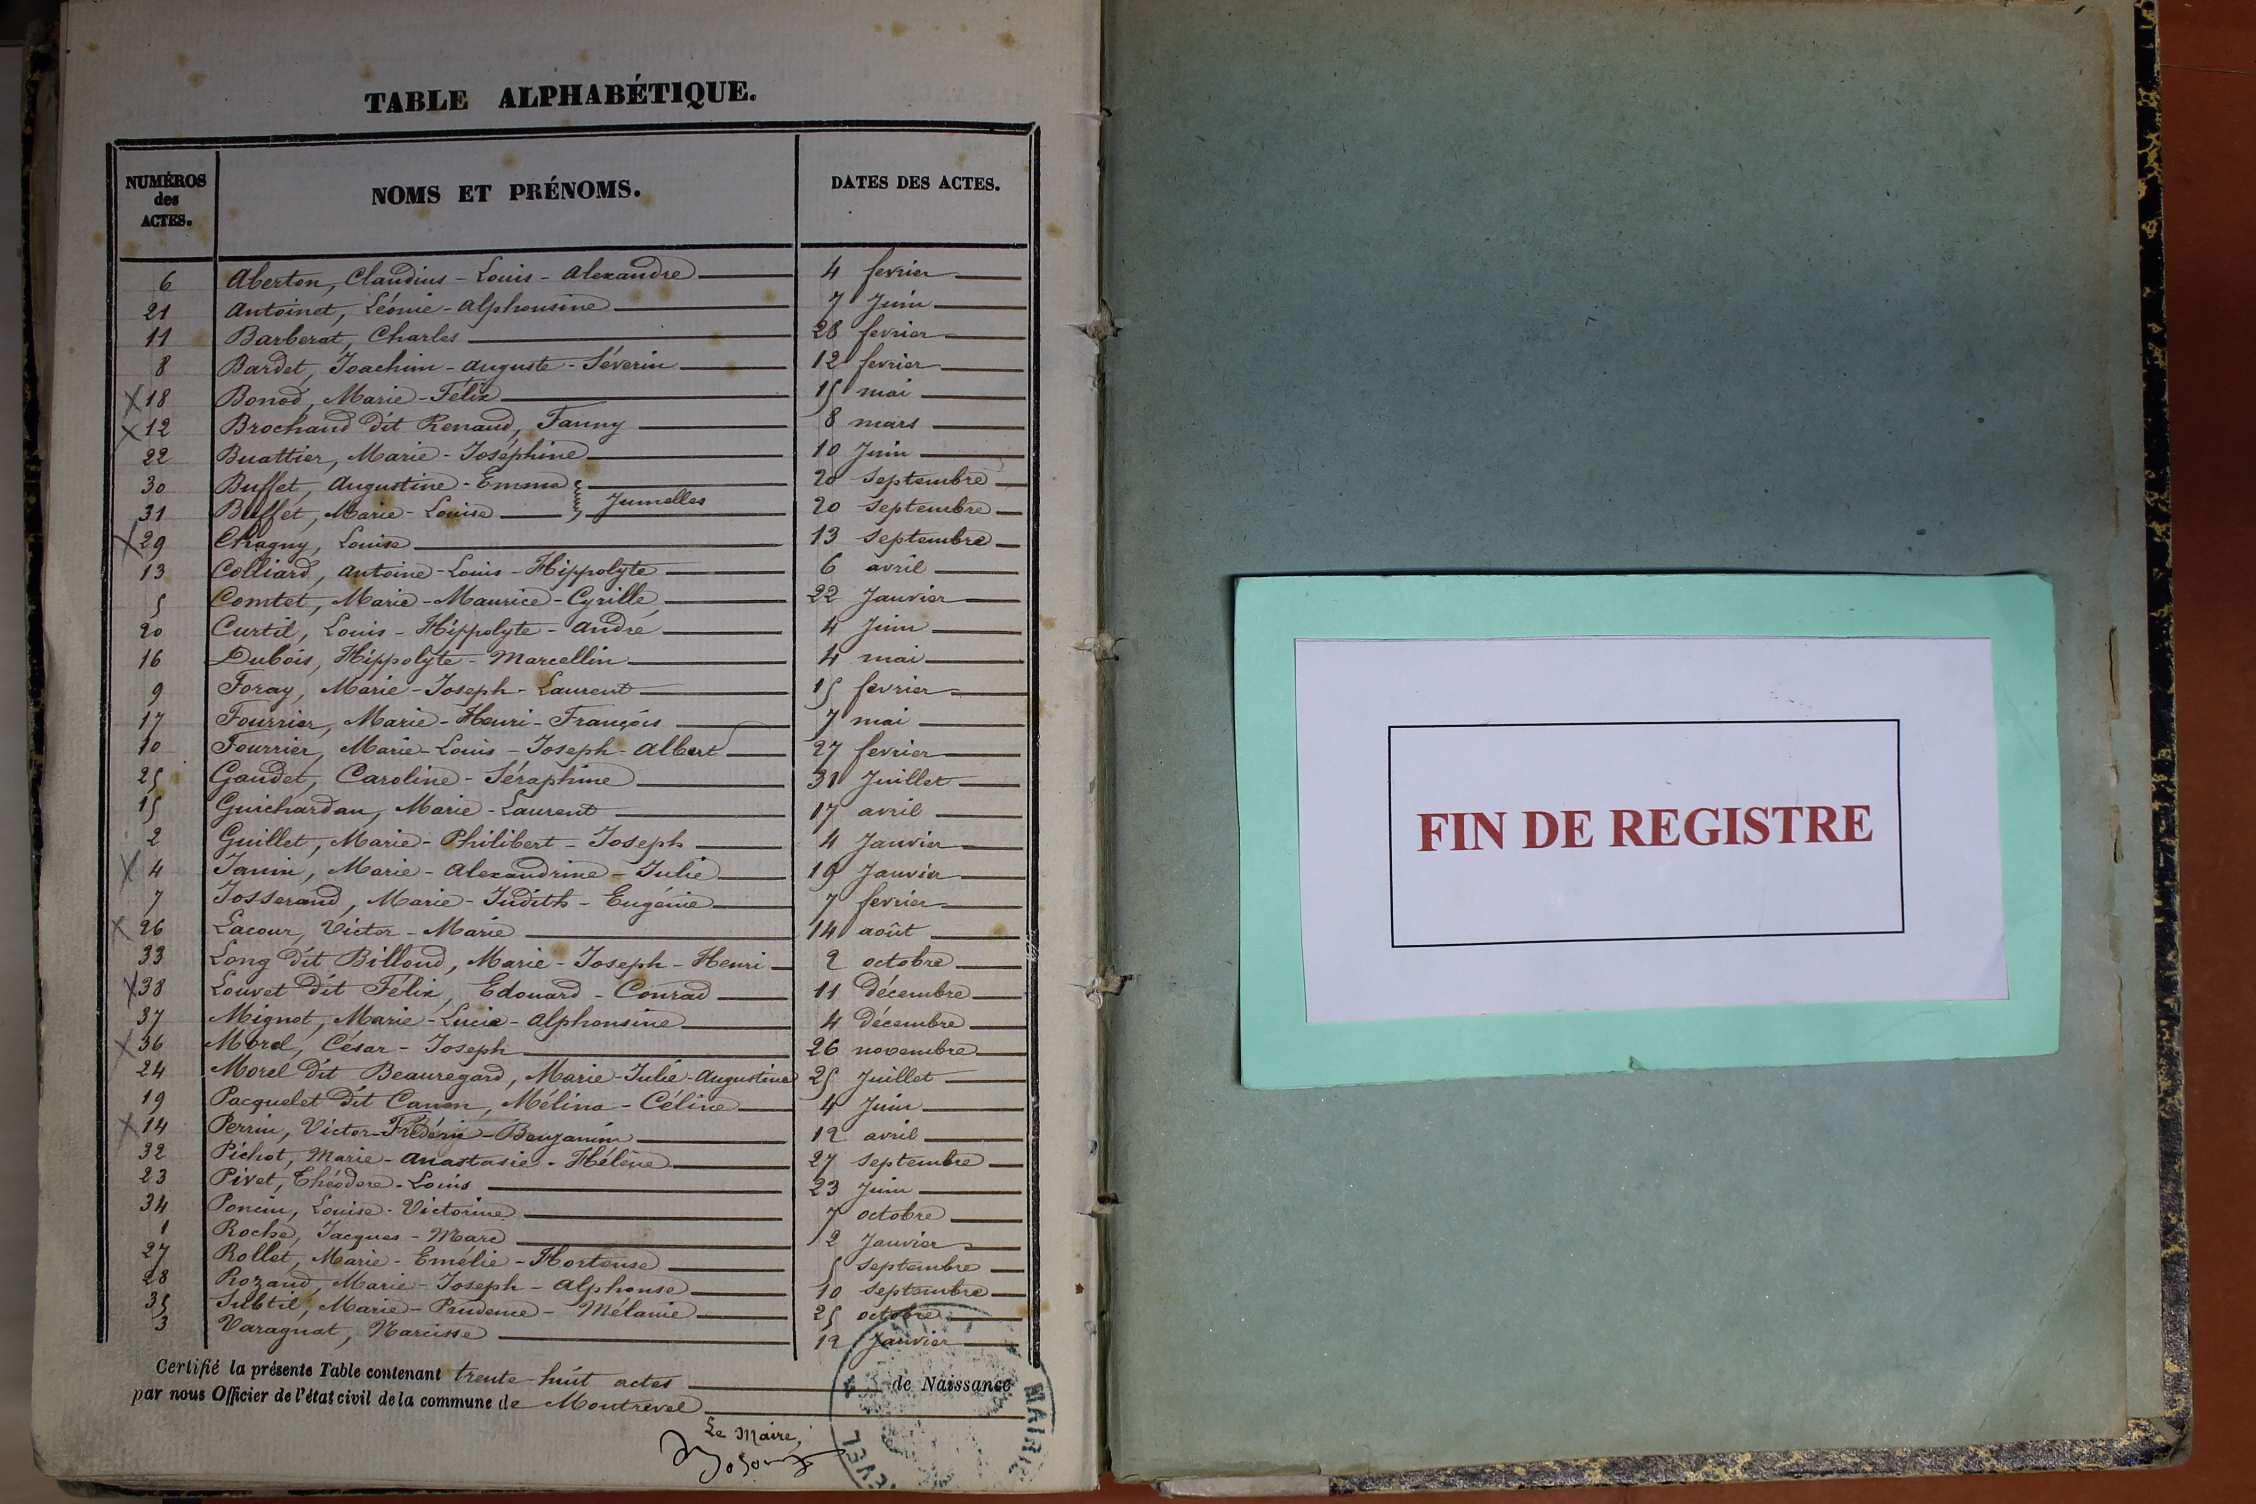 TABLE ALPHABÉTIQUE.
NUMÉROS des ACTES. NOMS ET PRÉNOMS. DATES DES ACTES.
6 Aberton, Claudius - Louis - Alexandre 4 fevrier
21 Antoinet, Léonie - Alphonsine 7 Juin
11 Barberat, Charles 28 fevrier
8 Bardet, Joachim - Auguste - Séverin 12 fevrier
X 18 Bonod, Marie - Félix 15 mai
X 12 Brochand dit Renaud, Fanny 8 mars
22 Buattier, Marie - Joséphine 10 Juin
30 Buffet, Augustine - Emma 20 Septembre
31 Buffet, Marie - Louise } Jumelles 20 Septembre
X 29 Chagny, Louise 13 Septembre
13 Colliard, Antoine - Louis - Hippolyte 6 avril
5 Comtet, Marie - Maurice - Cyrille 22 Janvier
20 Curtil, Louis - Hippolyte - André 4 Juin
16 Dubois, Hippolyte - Marcellin 4 mai
9 Foray, Marie - Joseph - Laurent 15 fevrier
17 Fourrier, Marie - Henri - François 7 mai
10 Fourrier, Marie - Louis - Joseph - Albert 27 fevrier
25 Gaudet, Caroline - Séraphine 31 Juillet
15 Guichardan, Marie - Laurent 17 avril
2 Guillet, Marie - Philibert - Joseph 4 Janvier
X 4 Janin, Marie - Alexandrine - Julie 19 Janvier
7 Josserand, Marie - Judith - Eugénie 7 fevrier
X 26 Lacour, Victor - Marie 14 août
33 Long dit Billoud, Marie - Joseph - Henri 2 octobre
X 38 Louvet dit Félix, Edouard - Conrad 11 Décembre
37 Mignot, Marie - Lucie - Alphonsine 4 Décembre
X 36 Morel, César - Joseph 26 novembre
24 Morel dit Beauregard, Marie - Julie - Augustine 25 Juillet
19 Pacquelet dit Canon, Mélina - Céline 4 Juin
X 14 Perrin, Victor - Frédéric - Benjamin 12 avril
32 Pichot, Marie - Anastasie - Hélène 27 Septembre
23 Pivet, Théodore - Louis 23 Juin
34 Poncin, Louise - Victorine 7 octobre
1 Roche, Jacques - Marc 2 Janvier
27 Rollet, Marie - Emélie - Hortense 5 Septembre
28 Rozand, Marie - Joseph - Alphonse 10 Septembre
35 Subtil, Marie - Prudence - Mélanie 25 octobre
3 Varagnat, Narcisse 12 Janvier
Certifié la présente Table contenant trente-huit actes de Naissance
par nous Officier de l'état civil de la commune de Montrevel
Le Maire,
MAIRIE
FIN DE REGISTRE